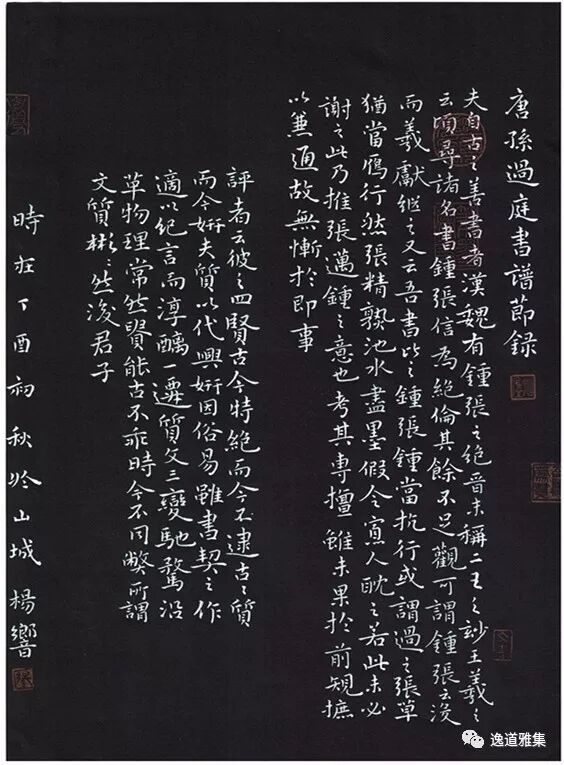 唐孫過庭書譜節錄
夫自古之善書者漢魏有鍾張之絕晉末稱二王之妙王羲之
云頃尋諸名書鍾張信為絕倫其餘不足觀可謂鍾張云沒
而羲獻繼之又云吾書比之鍾張鍾當抗行或謂過之張草
猶當鴈行然張精熟池水盡墨假令寡人耽之若此未必
謝之此乃推張邁鍾之意也考其專擅雖未果於前規摭
以兼通故無慚於即事
評者云彼之四賢古今特絕而今不逮古古質
而今妍夫質以代興妍因俗易雖書契之作
適以紀言而淳醨一遷質文三變馳騖沿
革物理常然貴能古不乖時今不同弊所謂
文質彬彬然後君子
時在丁酉初秋於山城楊響
逸道雅集